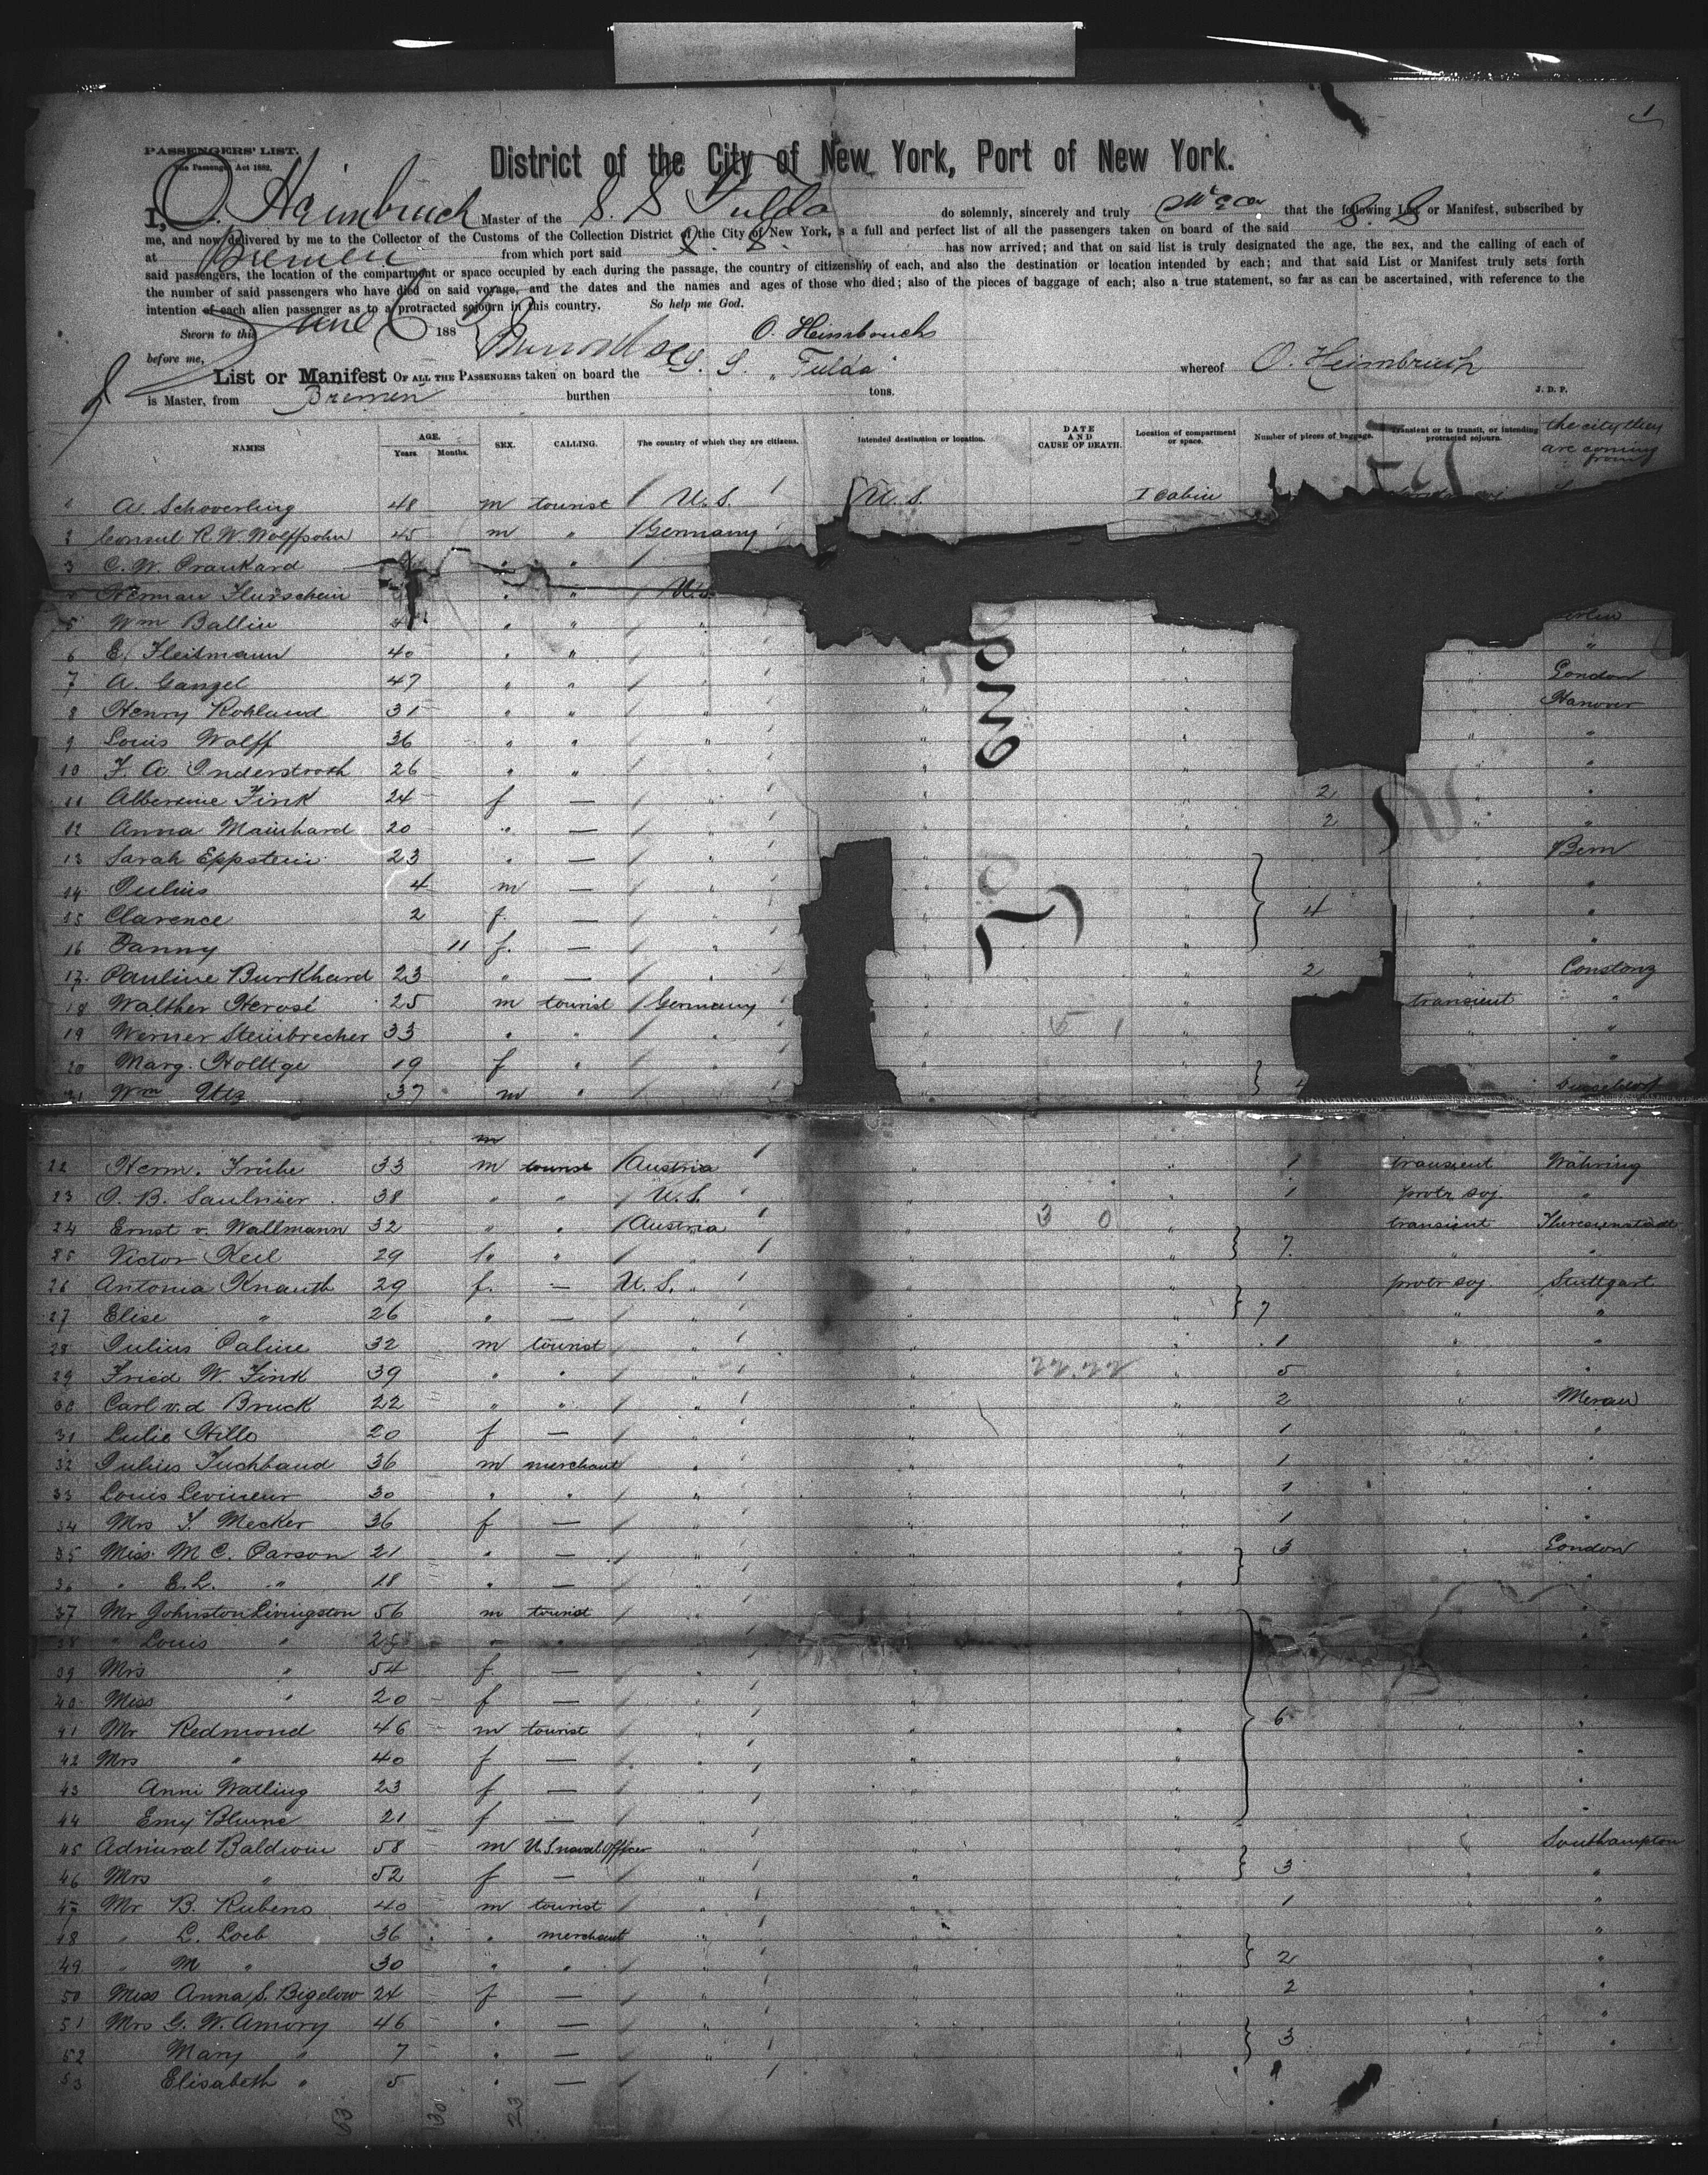 1
PASSENGERS' LIST.
District of the City of New York, Port of New York.
I, O. Heimbruch Master of the S. S. Fulda do solemnly, sincerely and truly that the following List or Manifest, subscribed by
me, and now delivered by me to the Collector of the Customs of the Collection District of the City of New York, is a full and perfect list of all the passengers taken on board of the said S. S.
at Bremen from which port said S. S. has now arrived; and that on said list is truly designated the age, the sex, and the calling of each of
said passengers, the location of the compartment or space occupied by each during the passage, the country of citizenship of each, and also the destination or location intended by each; and that said List or Manifest truly sets forth
the number of said passengers who have died on said voyage, and the dates and the names and ages of those who died; also of the pieces of baggage of each; also a true statement, so far as can be ascertained, with reference to the
intention of each alien passenger as to a protracted sojourn in this country. So help me God.
Sworn to this June 6 188 O. Heimbruch
before me,
List or Manifest OF ALL THE PASSENGERS taken on board the S. S. "Fulda" whereof O. Heimbruch
is Master, from Bremen burthen tons. J. D. P.
NAMES AGE. Years Months. SEX. CALLING. The country of which they are citizens. Intended destination or location. DATE AND CAUSE OF DEATH. Location of compartment or space. Number of pieces of baggage. Transient or in transit, or intending protracted sojourn. the city they are coming from
1 A. Schoverling 48 m tourist U.S. U.S. I Cabin
2 Consul R. W. Wolffsohn 45 m " Germany
3 C. W. Prankard " "
4 Herman Flurschein " " U.S.
5 Wm Ballin " " "
6 E. Fleitmann 40 " " "
7 A. Cangel 47 " " " London
8 Henry Rohland 31 " " " Hanover
9 Louis Wolff 36 " " " "
10 F. A. Onderstroth 26 " " " "
11 Albertine Fink 24 f — " 2 "
12 Anna Mainhard 20 " — " 2 "
13 Sarah Eppstein 23 " — " Bern
14 Julius 4 m — " "
15 Clarence 2 f. — " 4 "
16 Fanny 11 f. — " "
17 Pauline Burkhard 23 " — " 2 Constanz
18 Walther Herosé 25 m tourist Germany transient "
19 Werner Steinbrecher 33 " " " "
20 Marg. Holltge 19 f " " "
21 Wm Utz 37 m " " Dusseldorf
m
22 Herm. Frühe 33 m tourist Austria " " 1 transient Währing
23 O. B. Saulnier 38 " " U.S. " " 1 protr soj. "
24 Ernst v. Wallmann 32 " " Austria " " transient Theresienstadt
25 Victor Keil 29 " " " " 7 " "
26 Antonia Knauth 29 f. — U.S. " " protr soj Stuttgart
27 Elise " 26 " — " " " 7 " "
28 Julius Palme 32 m tourist " " " 1 " "
29 Fried W. Fink 39 " " " " " 5 " "
30 Carl v. d. Bruck 22 " " " " " 2 " Meran
31 Lulie Hillo 20 f — " " " 1 "
32 Julius Tuchband 36 m merchant " " " 1 "
33 Louis Levineur 30 " " " " " 1 "
34 Mrs F. Mecker 36 f — " " " 1 "
35 Miss M C. Parson 21 " — " " " 3 " London
36 " E. L. " 18 " — " " " "
37 Mr Johnston Livingston 56 m tourist " " " "
38 " Louis " 25 " " " " " "
39 Mrs " 54 f — " " " "
40 Miss " 20 f — " " " "
41 Mr Redmond 46 m tourist " " " 6 " "
42 Mrs " 40 f — " " " "
43 Anni Watling 23 f — " " " "
44 Emy Blume 21 f — " " " "
45 Admiral Baldwin 58 m U.S. naval Officer " " " Southampton
46 Mrs " 52 f — " " " 3 "
47 Mr B. Rubens 40 m tourist " " " 1 " "
48 " L. Loeb 36 " merchant " " " "
49 " M " 30 " " " " " 2 " "
50 Miss Anna S. Bigelow 24 f — " " " 2 " "
51 Mrs G. W. Amory 46 " — " " " "
52 Mary " 7 " — " " " 3 " "
53 Elisabeth " 5 " —
63 30 23